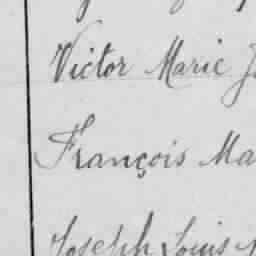 Victor Marie
François Ma
Joseph Louis